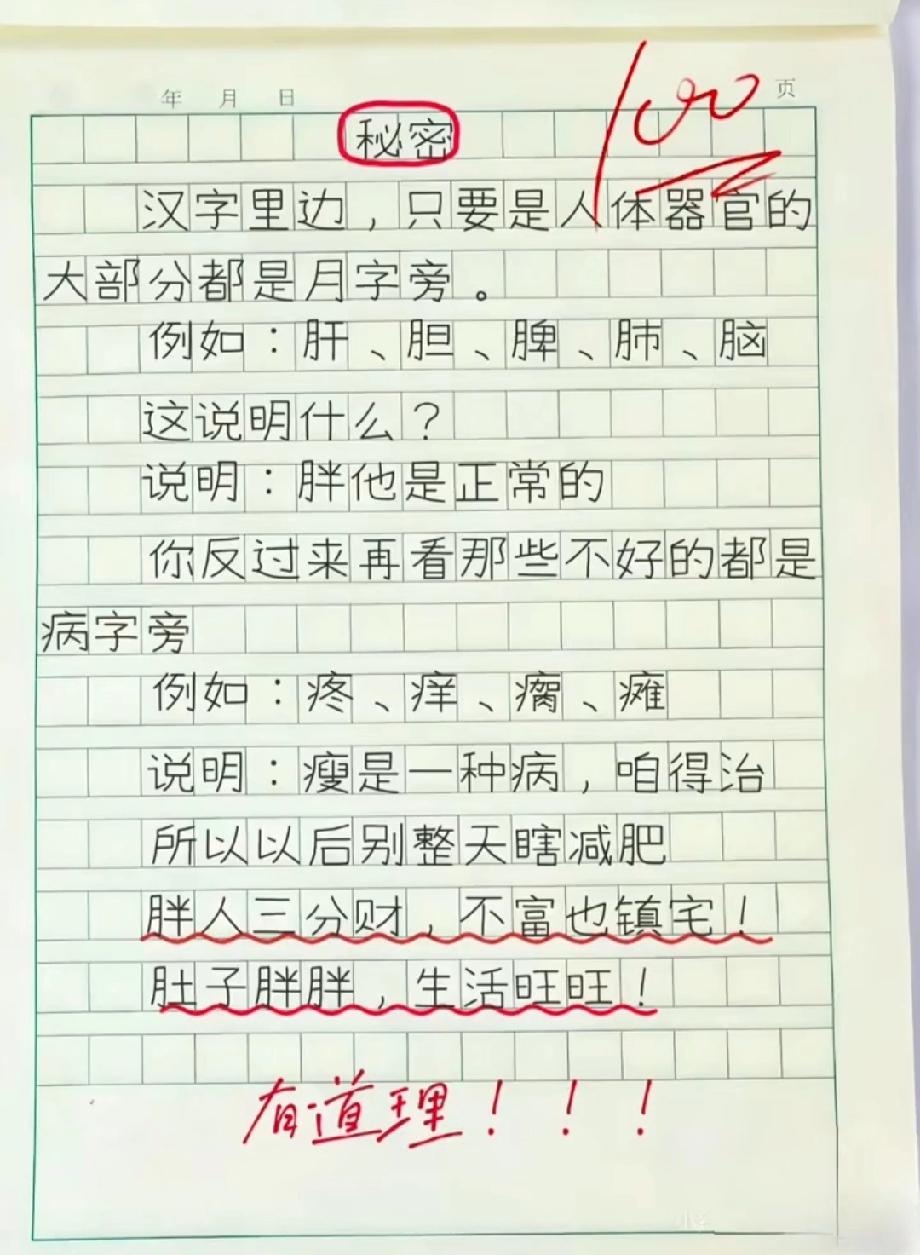 年 月 日 页
100
秘密
汉字里边，只要是人体器官的
大部分都是月字旁。
例如：肝、胆、脾、肺、脑
这说明什么？
说明：胖他是正常的
你反过来再看那些不好的都是
病字旁
例如：疼、痒、瘸、瘫
说明：瘦是一种病，咱得治
所以以后别整天瞎减肥
胖人三分财，不富也镇宅！
肚子胖胖，生活旺旺！
有道理！！！